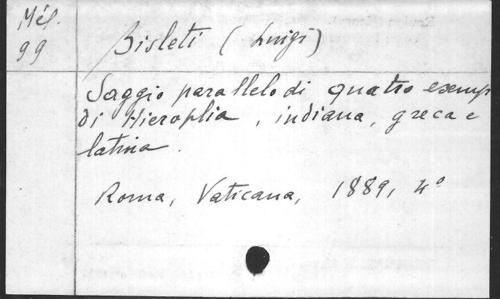 Mél.
99
Bisleti (Luigi)
Saggio parallelo di quatro esemp
di Hieroplia, indiana, greca e
latina.
Roma, Vaticana, 1889, 4º